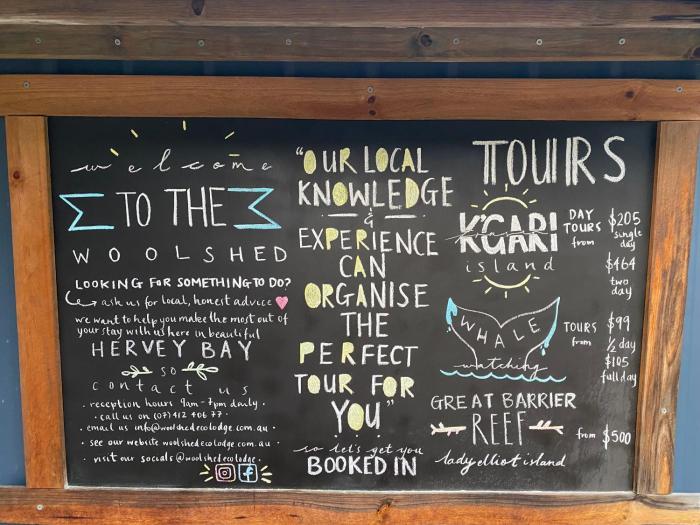 welcome
TO THE
WOOLSHED
LOOKING FOR SOMETHING TO DO?
ask us for local, honest advice
we want to help you make the most out of
your stay with us here in beautiful
HERVEY BAY
so
contact us
. reception hours 9am - 7pm daily .
. call us on (07) 412 406 77 .
. email us info@woolshedecolodge.com.au .
. see our website woolshedecolodge.com.au .
. visit our socials @woolshedecolodge .
"OUR LOCAL
KNOWLEDGE
&
EXPERIENCE
CAN
ORGANISE
THE
PERFECT
TOUR FOR
YOU"
so let's get you
BOOKED IN
TOURS
K'GARI
island
DAY
TOURS
from
$205
single
day
$464
two
day
WHALE
watching
TOURS
from
$99
1/2 day
$105
full day
GREAT BARRIER
REEF
from $500
lady elliot island